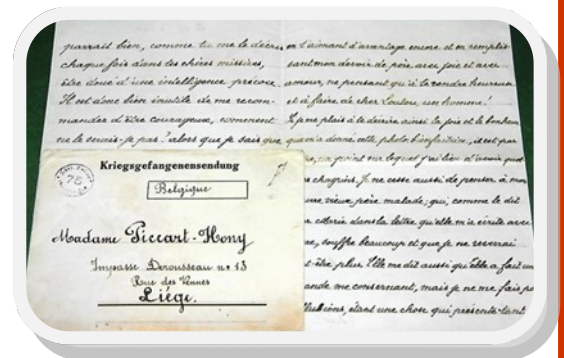 parrait bien, comme tu me le décris
chaque fois dans tes chères missives,
être doué d'une intelligence précoce.
Il est donc bien inutile de me recom-
mander d'être courageux, comment
ne le serais-je pas? alors que je sais que
en t'aimant d'avantage encore et en remplis-
sant mon devoir de père, avec joie et avec
amour, ne pensant qu'à te rendre heureuse
et à faire de cher Loulou, un homme!
Je me plais à te décrire ainsi la joie et le bonheur
que m'a donné cette photo bienfaitrice, il est par
un point sur lequel j'ai lieu d'avoir quel
chagrins. Je ne cesse aussi de penser à mon
vieux père malade; qui, comme le dit
Marie dans la lettre qu'elle m'a écrite avec
souffre beaucoup et que je ne reverrai
être plus. Elle me dit aussi qu'elle a fait un
ande me concernant, mais je ne me fais pa
illusions, étant une chose qui présente tant
75
Kriegsgefangenensendung
Belgique
Madame Piccart-Hony
Impasse Derousseau nº 13
Rue des Vennes
Liége.